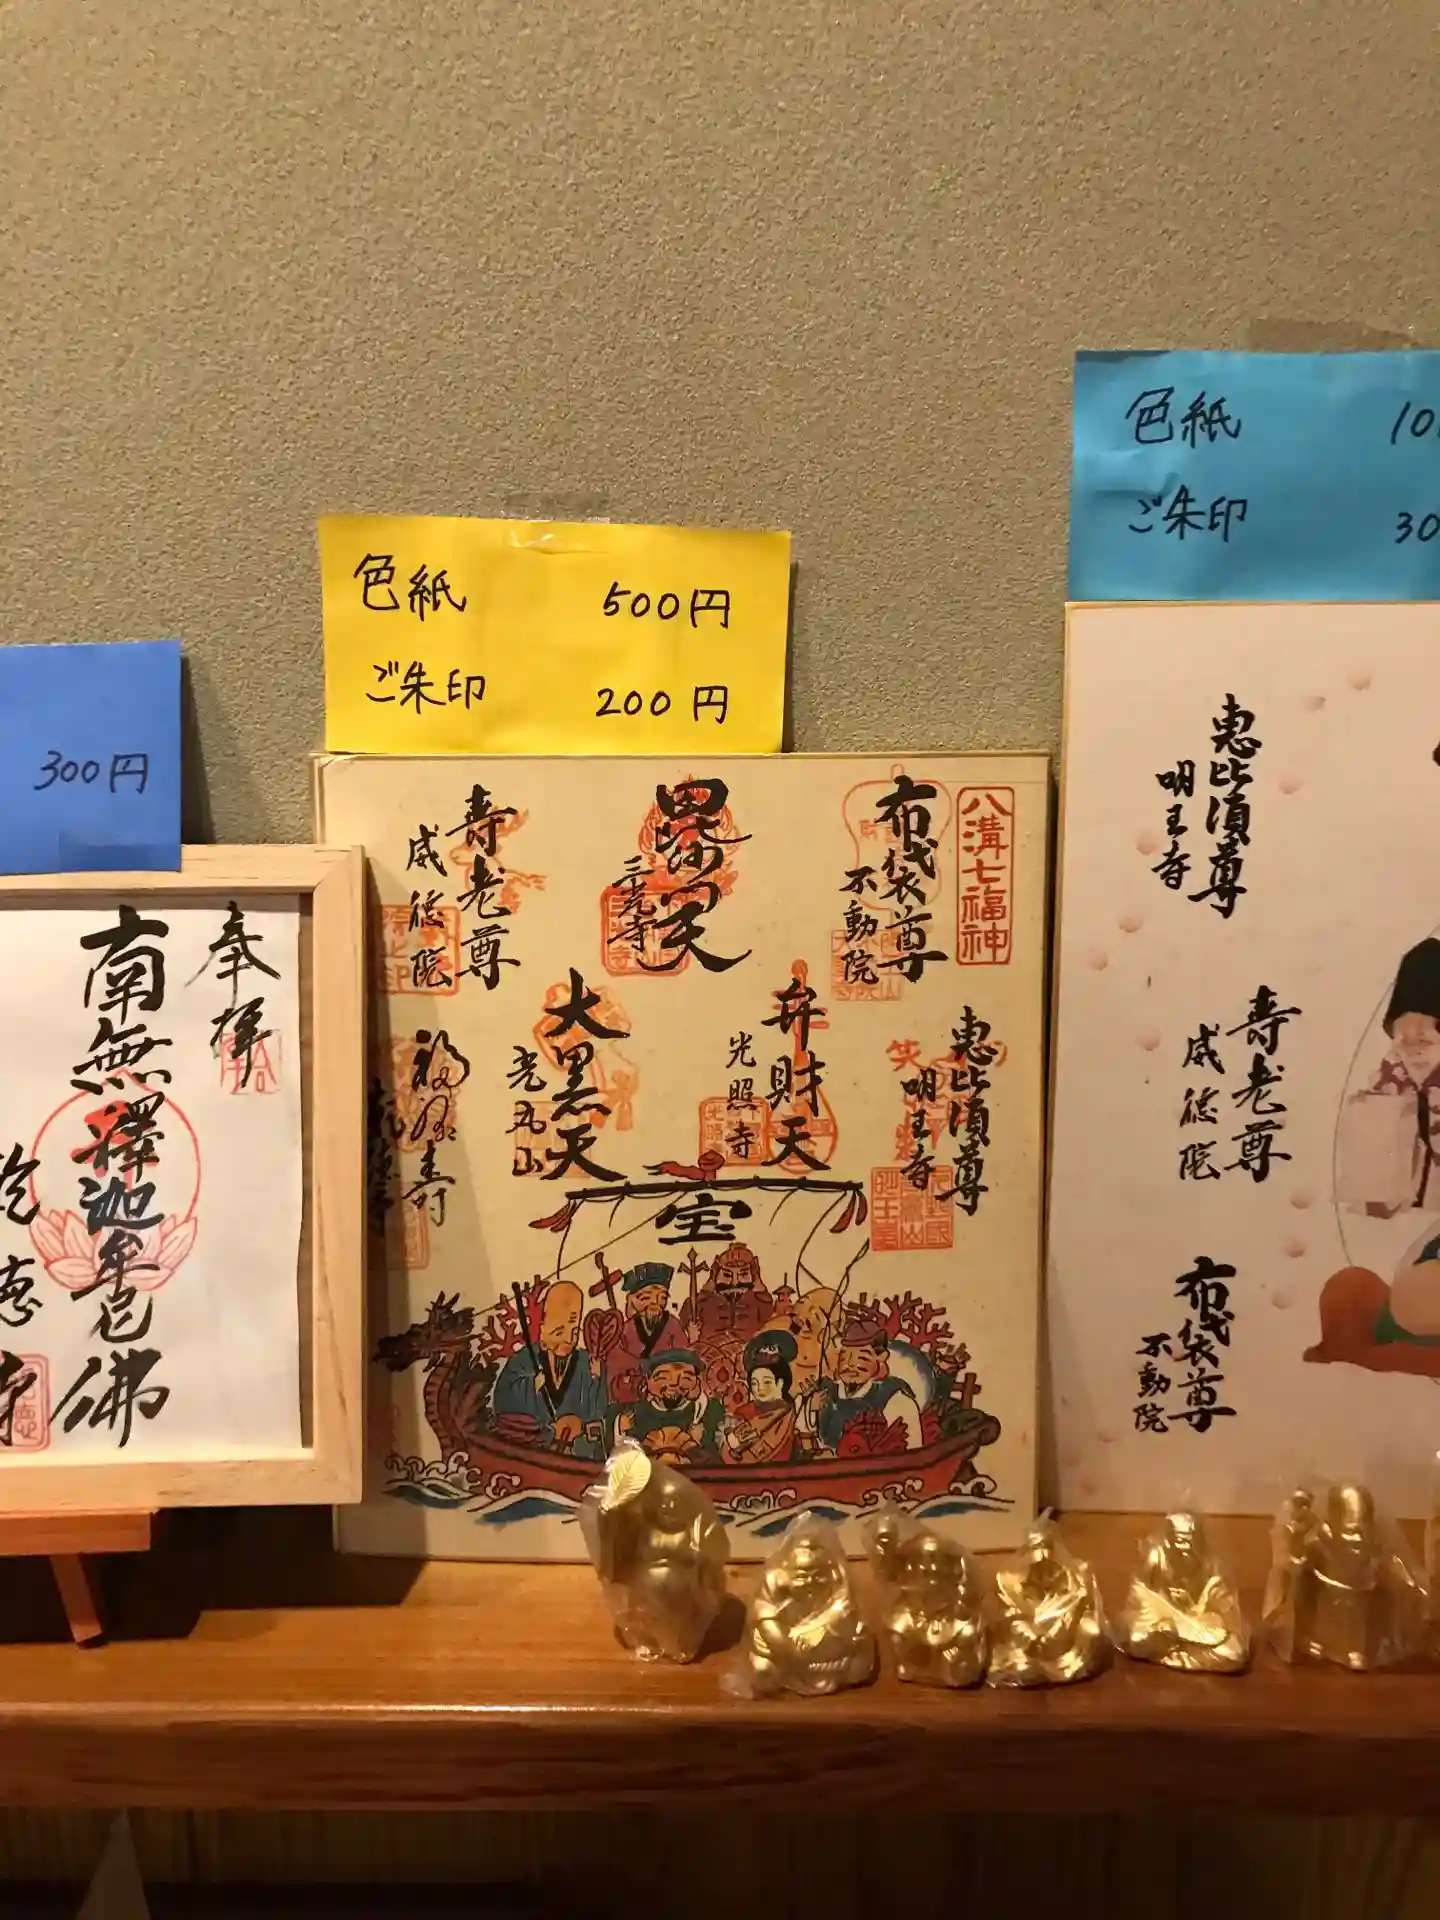 300円
奉拝
南無釋迦牟尼佛
色紙 500円
ご朱印 200円
八溝七福神
布袋尊
不動院
毘沙門天
三光寺
寿老尊
威徳院
恵比須尊
明王寺
弁財天
光照寺
大黒天
光丸山
福禄寿
宝
色紙 10
ご朱印 30
恵比須尊
明王寺
寿老尊
威徳院
布袋尊
不動院